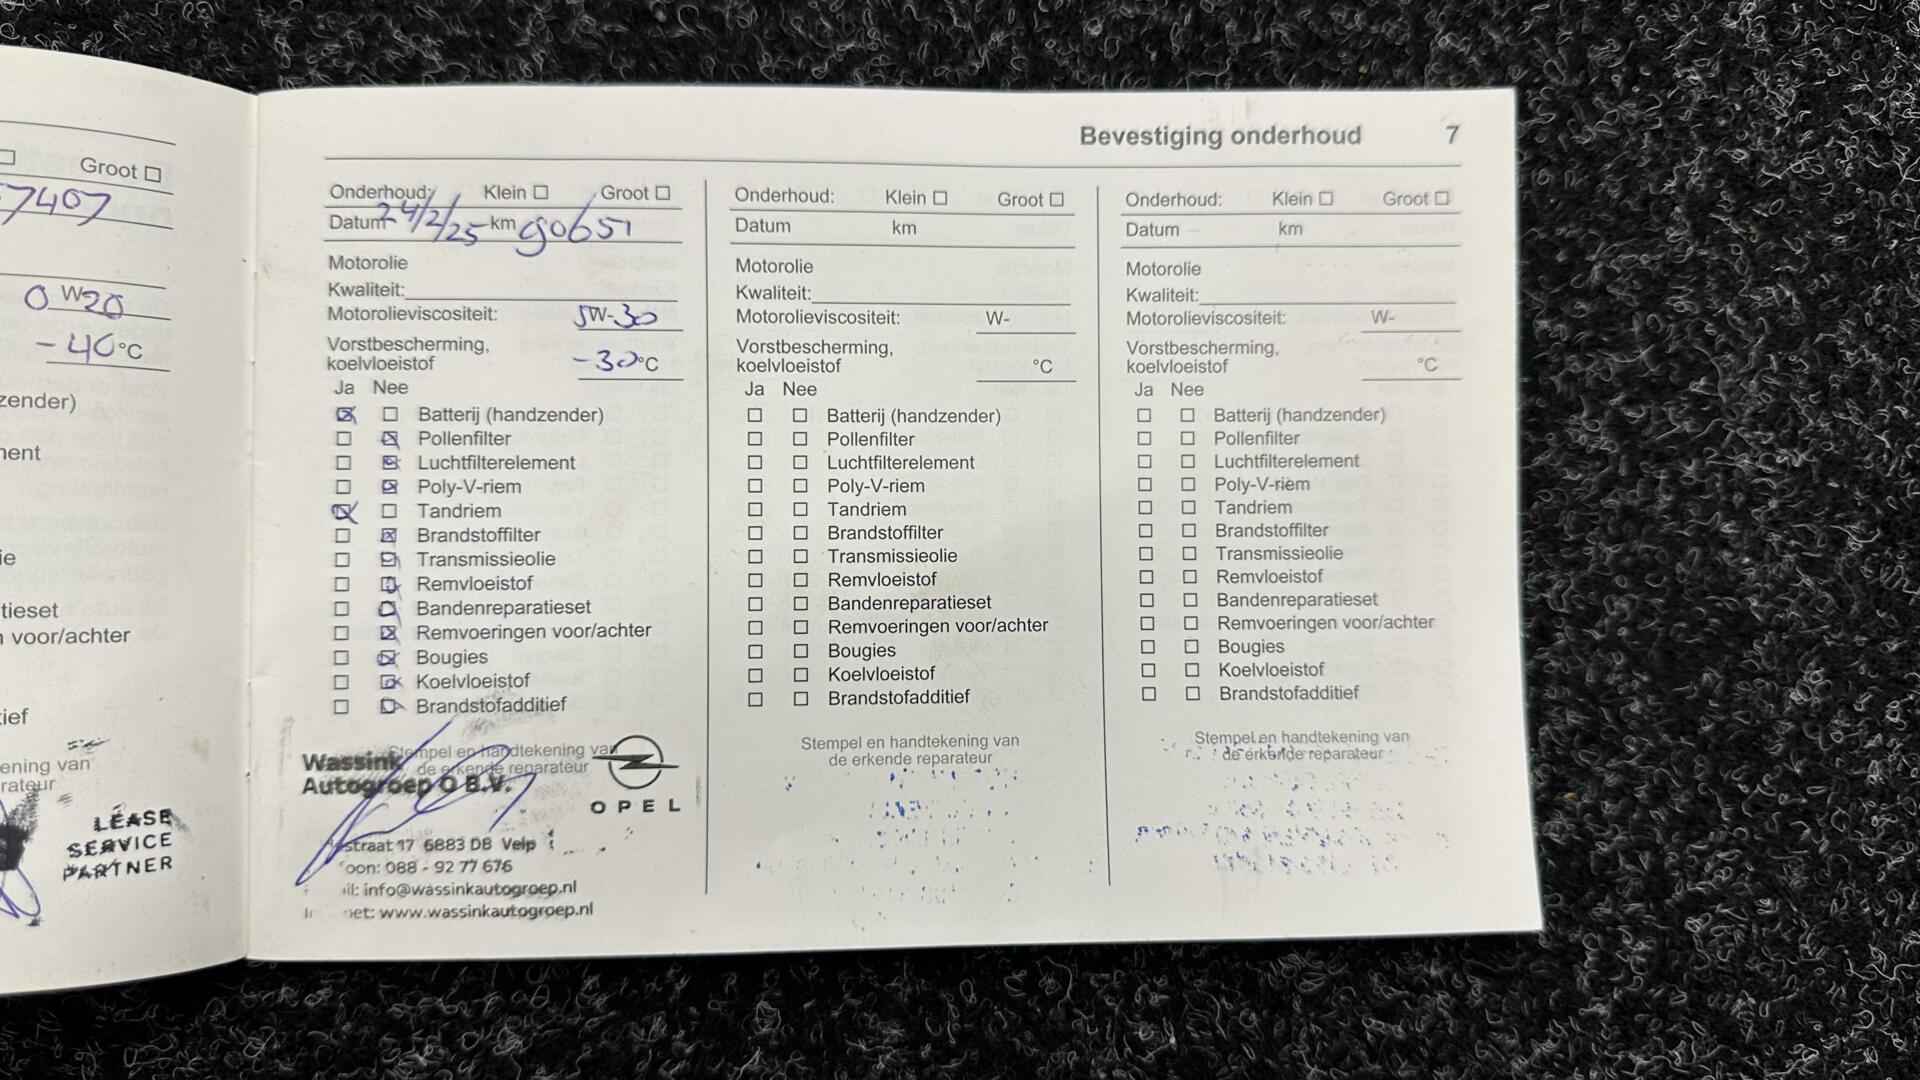 Groot
57407
0 W20
-40 °C
zender)
nent
ie
tieset
voor/achter
tief
ening van
rateur
LEASE
SERVICE
PARTNER
Bevestiging onderhoud 7
Onderhoud: Klein Groot
Datum 24/2/25 km 90651
Motorolie
Kwaliteit:
Motorolieviscositeit: 5W-30
Vorstbescherming,
koelvloeistof -30°C
Ja Nee
Batterij (handzender)
Pollenfilter
Luchtfilterelement
Poly-V-riem
Tandriem
Brandstoffilter
Transmissieolie
Remvloeistof
Bandenreparatieset
Remvoeringen voor/achter
Bougies
Koelvloeistof
Brandstofadditief
Stempel en handtekening van
de erkende reparateur
Wassink
Autogroep O B.V.
OPEL
straat 17 6883 DB Velp
oon: 088 - 92 77 676
il: info@wassinkautogroep.nl
In net: www.wassinkautogroep.nl
Onderhoud: Klein Groot
Datum km
Motorolie
Kwaliteit:
Motorolieviscositeit: W-
Vorstbescherming,
koelvloeistof °C
Ja Nee
Batterij (handzender)
Pollenfilter
Luchtfilterelement
Poly-V-riem
Tandriem
Brandstoffilter
Transmissieolie
Remvloeistof
Bandenreparatieset
Remvoeringen voor/achter
Bougies
Koelvloeistof
Brandstofadditief
Stempel en handtekening van
de erkende reparateur
Onderhoud: Klein Groot
Datum km
Motorolie
Kwaliteit:
Motorolieviscositeit: W-
Vorstbescherming,
koelvloeistof °C
Ja Nee
Batterij (handzender)
Pollenfilter
Luchtfilterelement
Poly-V-riem
Tandriem
Brandstoffilter
Transmissieolie
Remvloeistof
Bandenreparatieset
Remvoeringen voor/achter
Bougies
Koelvloeistof
Brandstofadditief
Stempel en handtekening van
de erkende reparateur